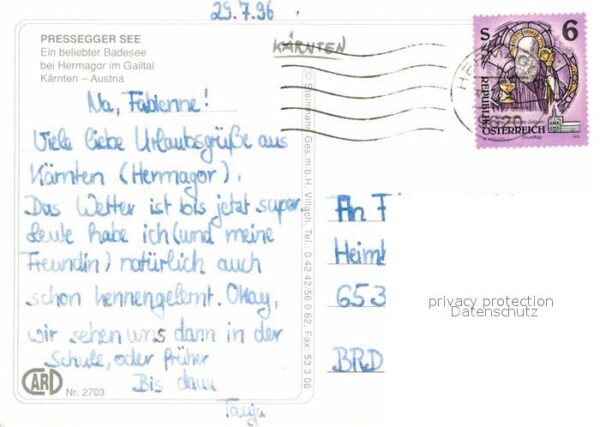 29.7.96
PRESSEGGER SEE
Ein beliebter Badesee
bei Hermagor im Gailtal
Kärnten – Austria
KÄRNTEN
Na, Fabienne!
Viele liebe Urlaubsgrüße aus
Kärnten (Hermagor).
Das Wetter ist bis jetzt super.
Leute habe ich (und meine
Freundin) natürlich auch
schon kennengelernt. Okay,
wir sehen uns dann in der
Schule, oder früher
Bis dann
Tanja
CARD
Nr. 2703
© Steinmann Ges.m.b.H. Villach, Tel.: 0 42 42/56 0 62, Fax: 53 3 06
S 6
REPUBLIK
ÖSTERREICH
9620
An F
Heim
653
BRD
privacy protection
Datenschutz